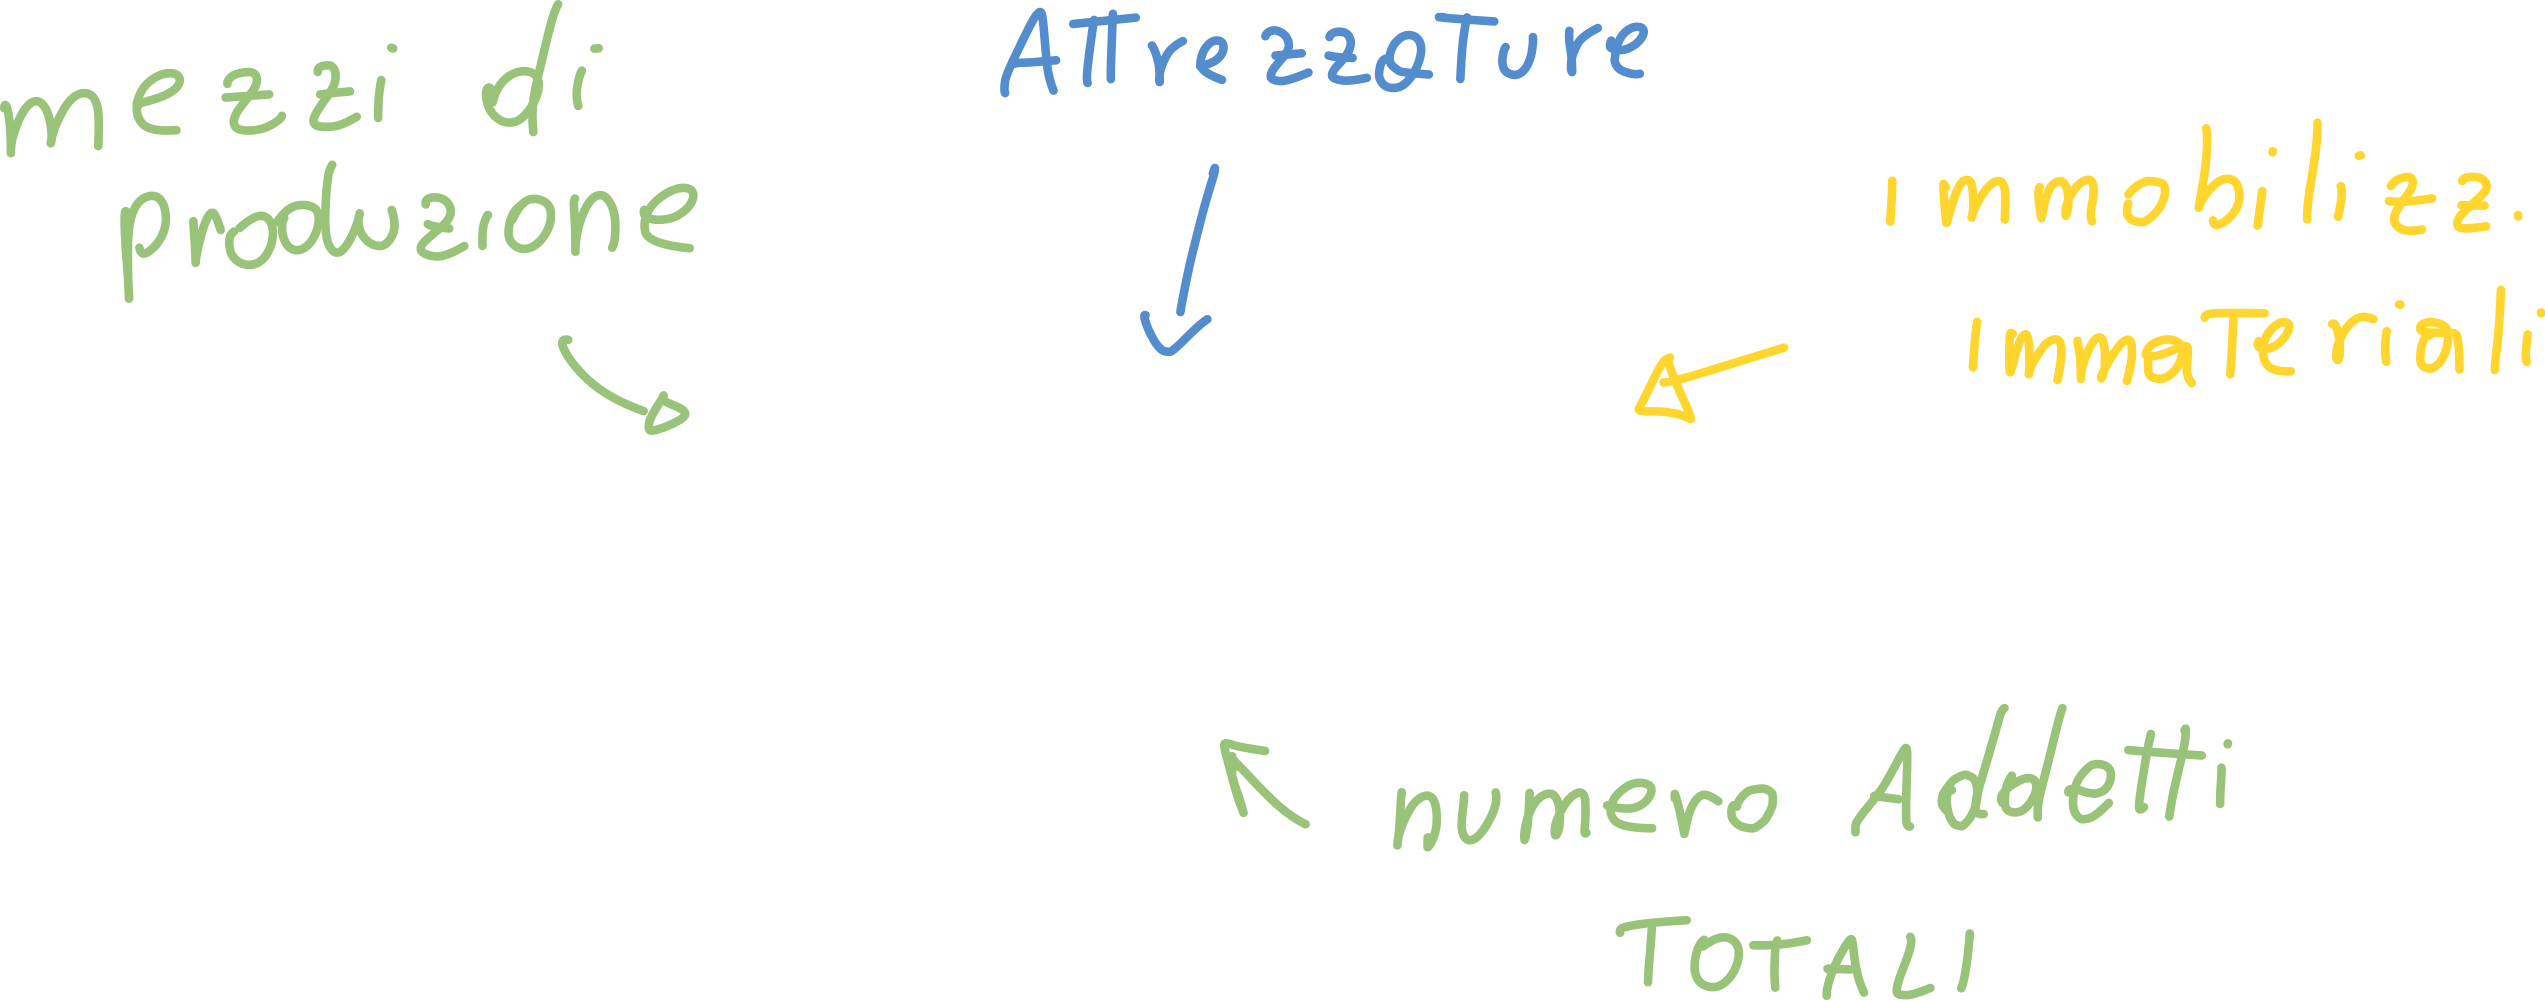 mezzi di
produzione
Attrezzature
immobilizz.
immateriali
numero Addetti
TOTALI